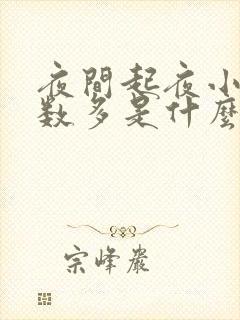 夜間起夜小
数多是什麼
宗峰嚴